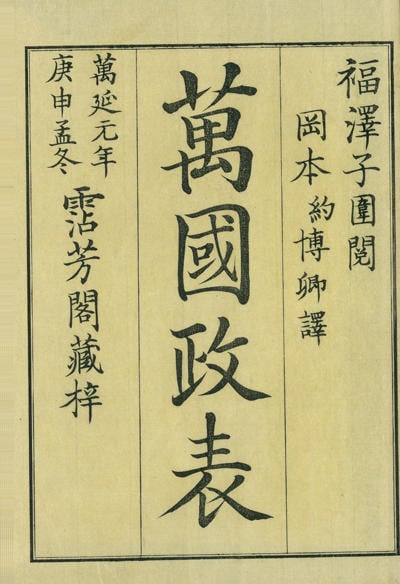 福澤子圍閲
岡本約博卿譯
萬國政表
萬延元年
庚申孟冬
霑芳閣藏梓